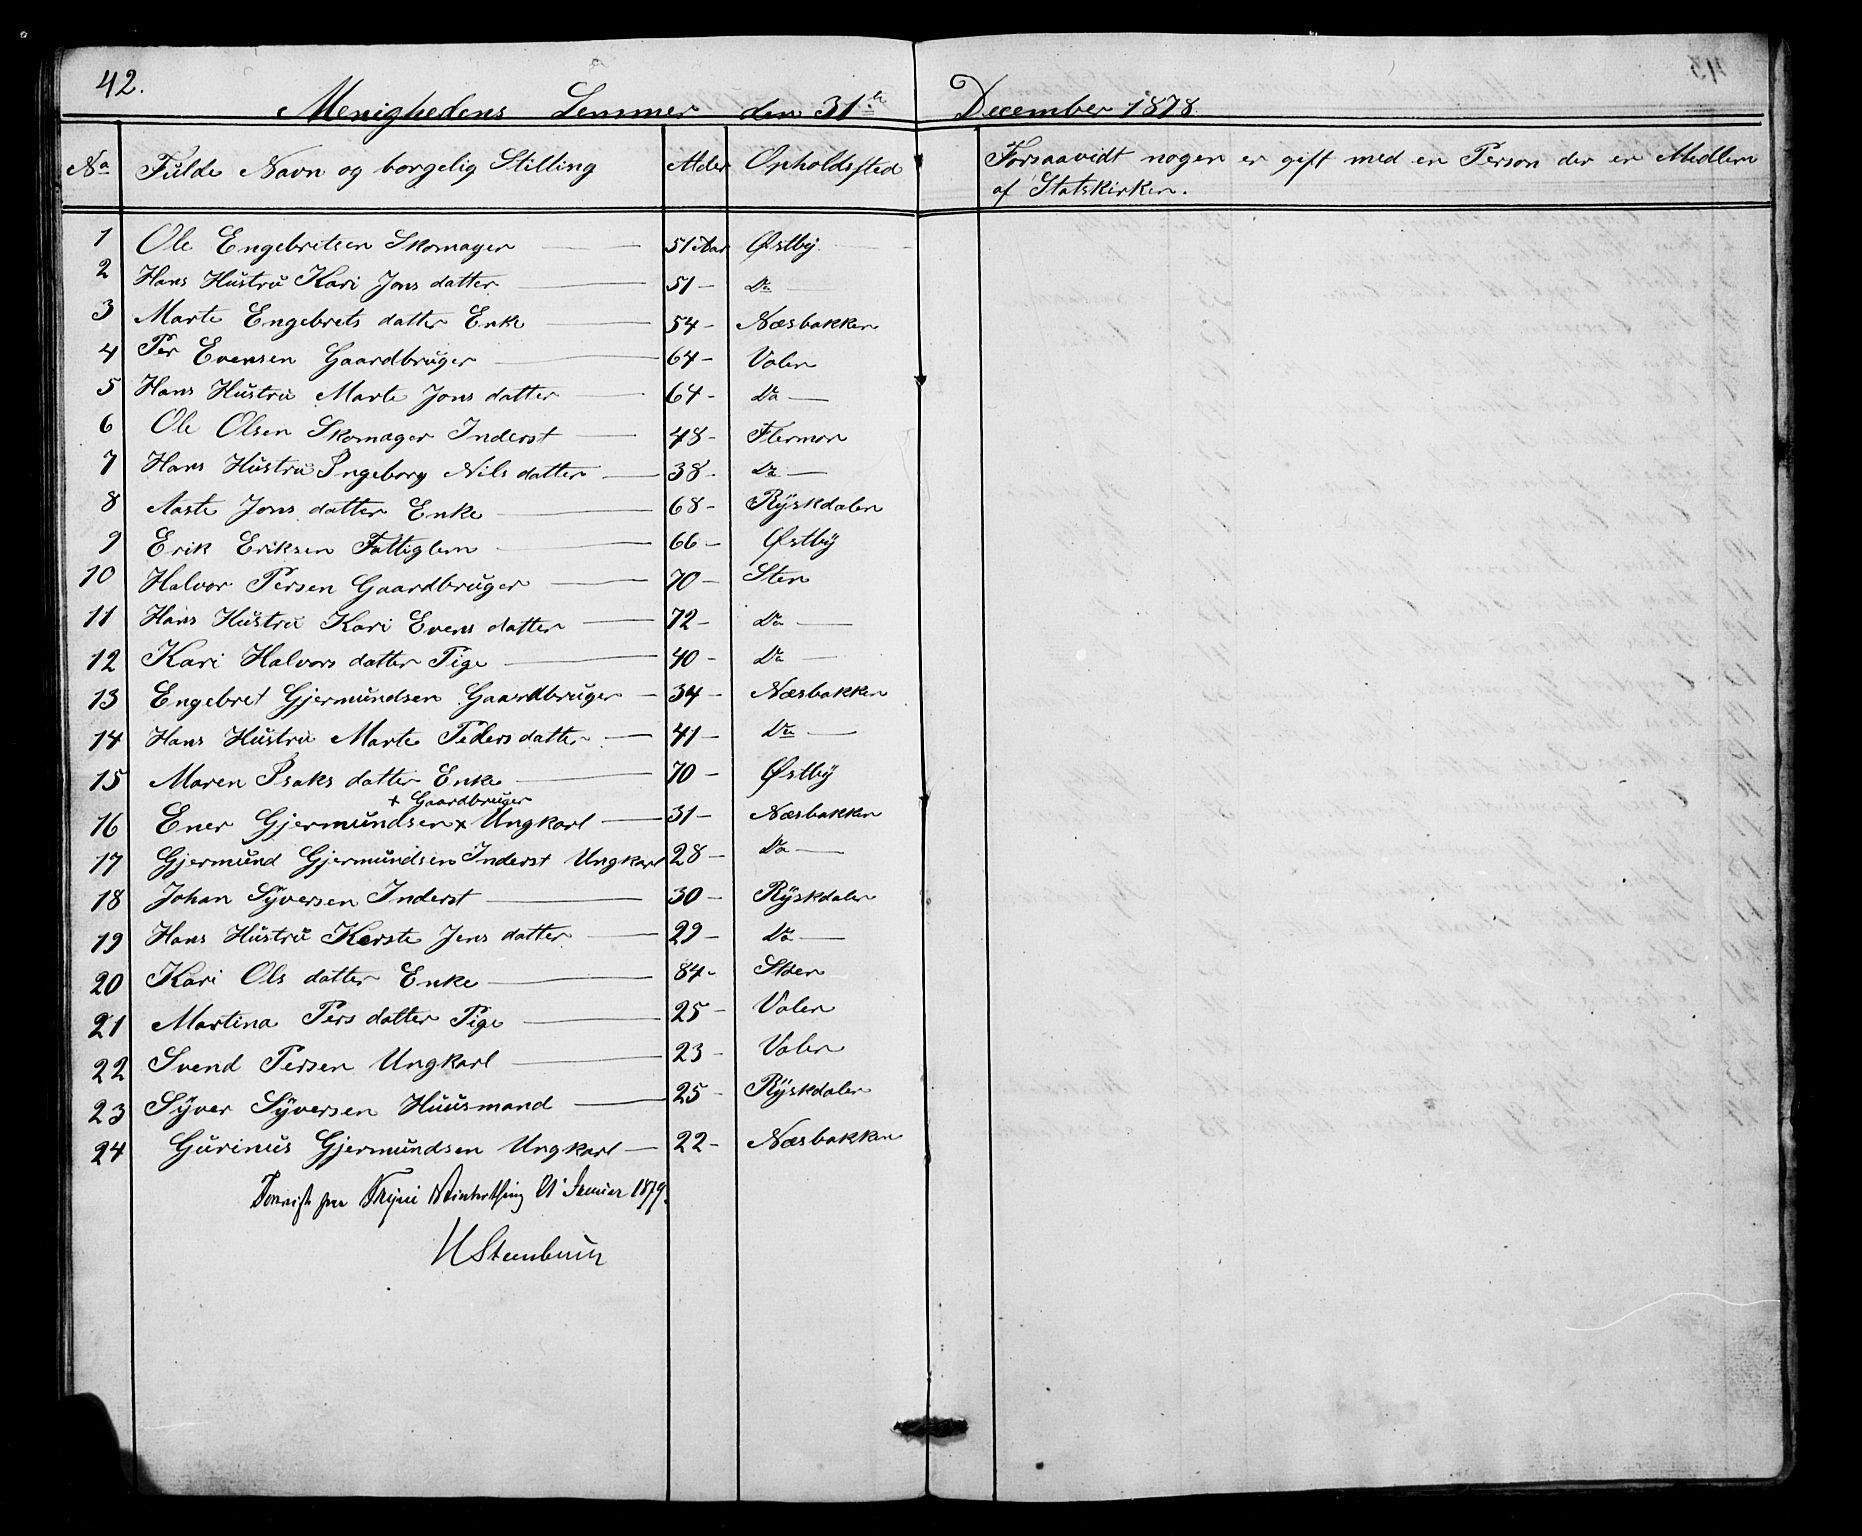 42.
Menighedens Lemmer den 31te December 1878
No Fulde Navn og borgelig Stilling Alder Opholdssted Forsaavidt nogen er gift med en Person der er Medlem
af Statskirken.
1 Ole Engebretsen Skomager 51 Aar Østby
2 Hans Hustru Kari Jons datter 51 - Do -
3 Marte Engebrets datter Enke 54 - Næsbakken
4 Per Evensen Gaardbruger 64 - Volen
5 Hans Hustru Marte Jons datter 64 - Do -
6 Ole Olsen Skomager Inderst 48 - Flermon
7 Hans Hustru Ingeborg Nils datter 38 - Do -
8 Aaste Jons datter Enke 68 - Ryskdalen
9 Erik Eriksen Fattiglem 66 - Østby
10 Halvor Persen Gaardbruger 70 - Sten
11 Hans Hustru Kari Evens datter 72 - Do -
12 Kari Halvors datter Pige 40 - Do -
13 Engebret Gjermundsen Gaardbruger 34 - Næsbakken
14 Hans Hustru Marte Peders datter 41 - Do -
15 Maren Isaks datter Enke 70 - Østby
+ Gaardbruger
16 Ener Gjermundsen x Ungkarl 31 - Næsbakken
17 Gjermund Gjermundsen Inderst Ungkarl 28 - Do -
18 Johan Syversen Inderst 30 - Ryskdalen
19 Hans Hustru Kerste Jens datter 29 - Do -
20 Kari Ols datter Enke 84 - Støen
21 Martina Pers datter Pige 25 - Volen
22 Svend Persen Ungkarl 23 - Volen
23 Syver Syversen Huusmand 25 - Ryskdalen
24 Gurinus Gjermundsen Ungkarl 22 - Næsbakken
Forevist paa Trysil Vinterthing 21 Januar 1879.